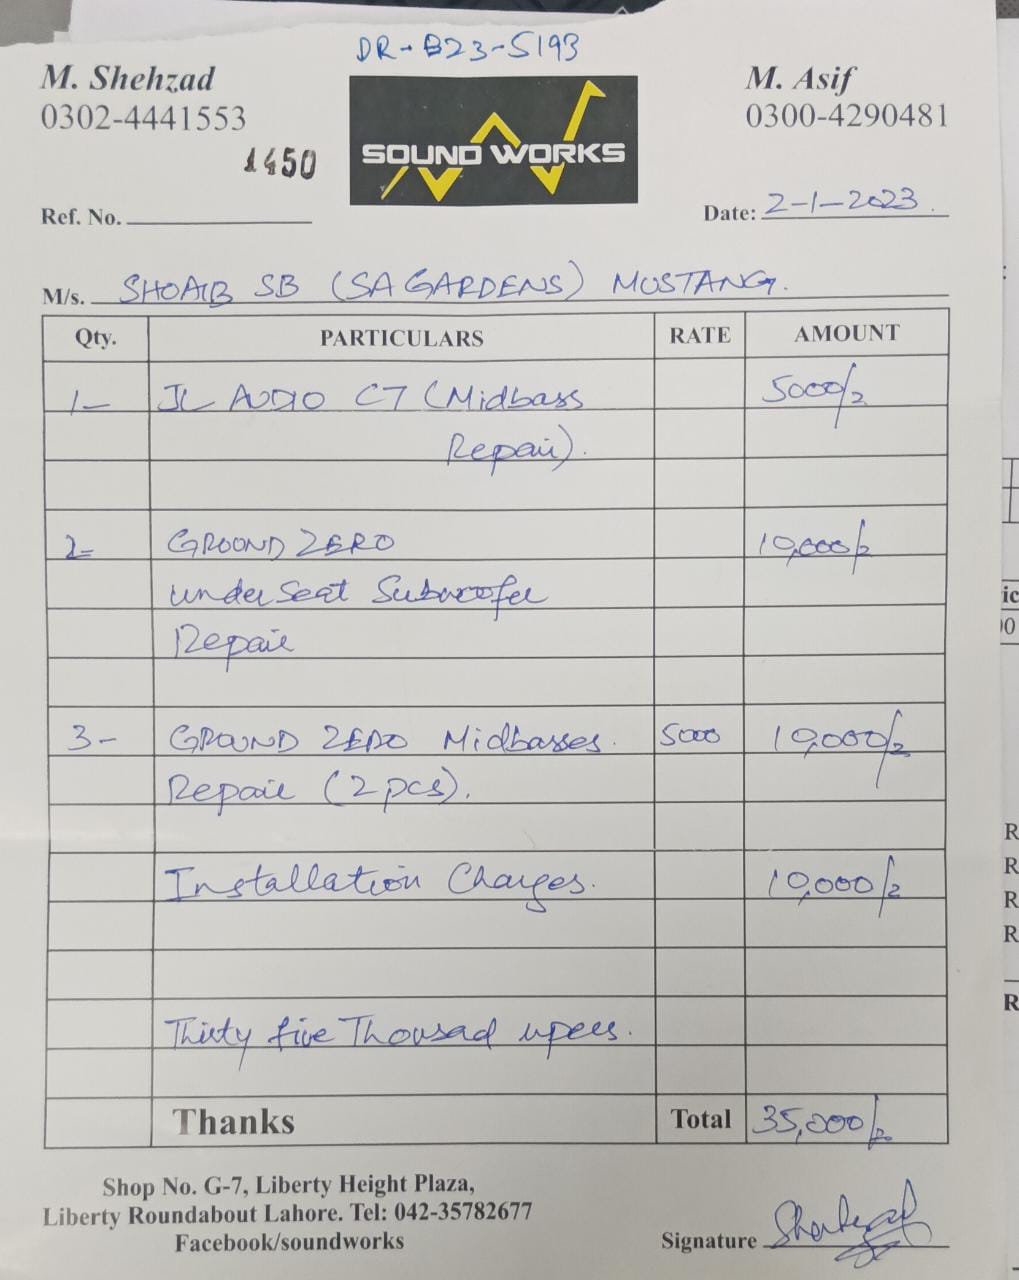 DR-B23-5193
M. Shehzad
0302-4441553
M. Asif
0300-4290481
1450
SOUND WORKS
Ref. No.
Date: 2-1-2023.
M/s. SHOAIB SB (SA GARDENS) MUSTANG.
Qty. PARTICULARS RATE AMOUNT
1- JL AUDIO C7 (Midbass 5000/=
Repair).
2- GROUND ZERO 10,000/=
underSeat Subwoofer
Repair
3- GROUND ZERO Midbasses. 5000 10,000/=
Repair (2pcs).
Installation Charges. 10,000/=
Thirty five Thousad upees.
Thanks Total 35,000/=
Shop No. G-7, Liberty Height Plaza,
Liberty Roundabout Lahore. Tel: 042-35782677
Facebook/soundworks
Signature Shehzad